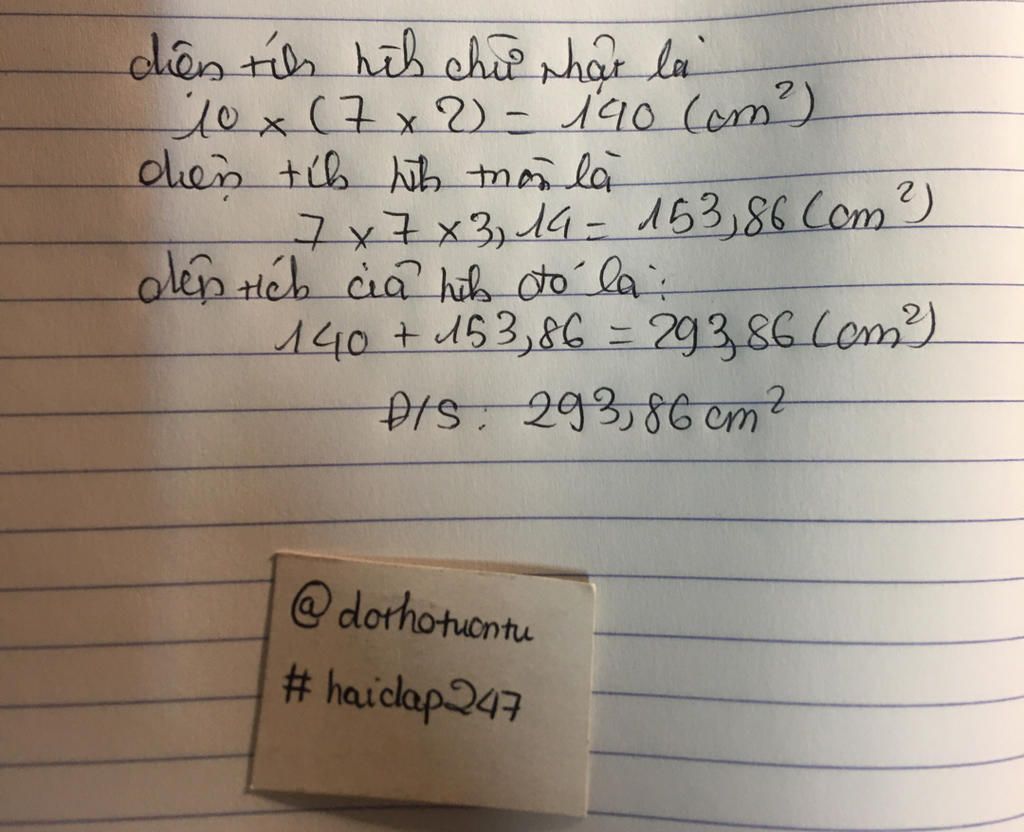 diện tích hìh chữ nhật là
10 x (7 x 2) = 140 (cm²)
diện tích hìh tròn là
7 x 7 x 3,14 = 153,86 (cm²)
diện tích củả hìh đó là:
140 + 153,86 = 293,86 (cm²)
Đ/S : 293,86 cm²
@dorhotuontu
#haidap247